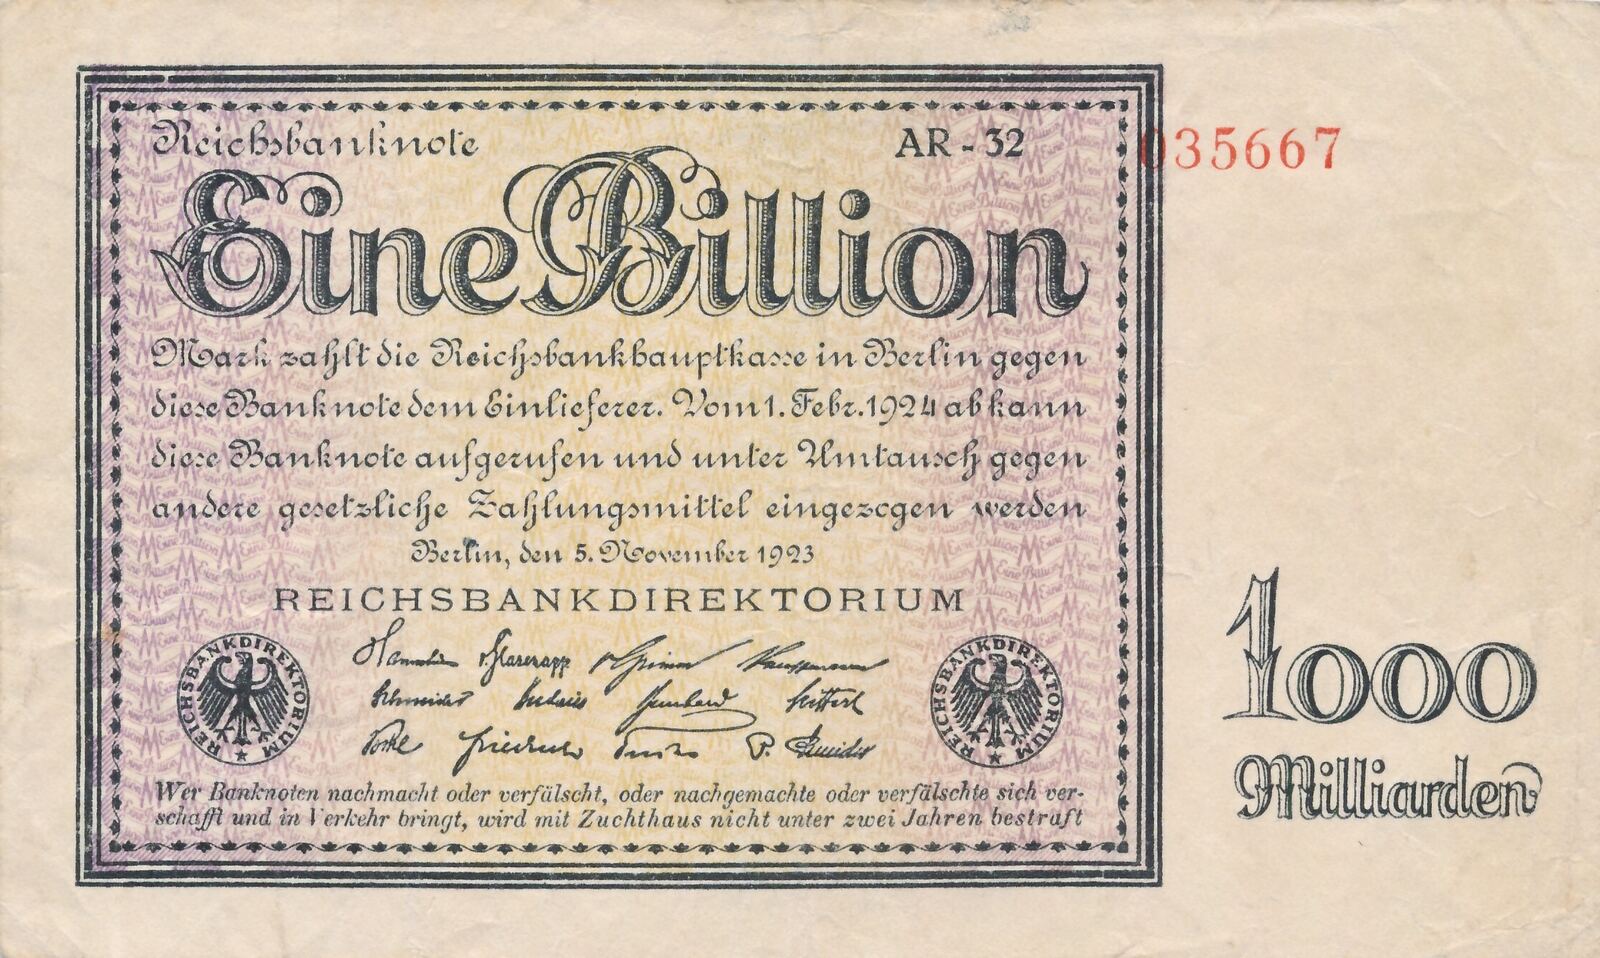 Reichsbanknote AR - 32 035667
Eine Billion
Mark zahlt die Reichsbankhauptkasse in Berlin gegen
diese Banknote dem Einlieferer. Vom 1. Febr. 1924 ab kann
diese Banknote aufgerufen und unter Umtausch gegen
andere gesetzliche Zahlungsmittel eingezogen werden
Berlin, den 5. November 1923
REICHSBANKDIREKTORIUM
REICHSBANKDIREKTORIUM
REICHSBANKDIREKTORIUM
v. Glasenapp v. Grimm Kauffmann
Schneider Budczies Bernhard Seiffert
Vocke Friedrich Fuchs P. Schneider
Wer Banknoten nachmacht oder verfälscht, oder nachgemachte oder verfälschte sich ver-
schafft und in Verkehr bringt, wird mit Zuchthaus nicht unter zwei Jahren bestraft
1000
Milliarden